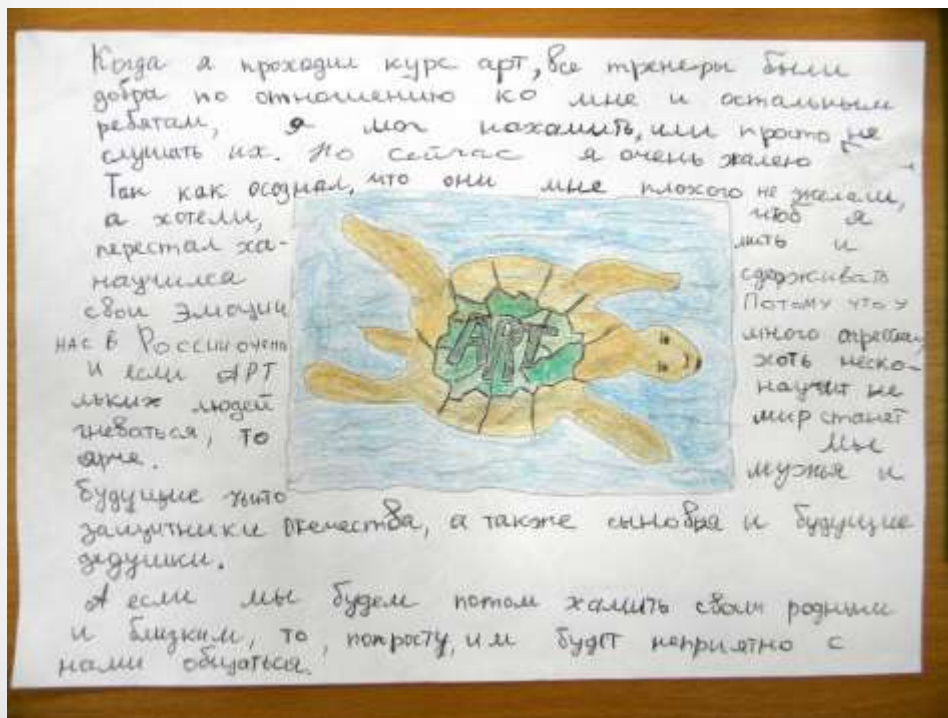 Когда я проходил курс арт, все тренеры были
добра по отношению ко мне и остальным
ребятам, я мог нахамить, или просто не
слушать их. Но сейчас я очень жалею
Так как осознал, что они мне плохого не желали,
а хотели, чтоб я
перестал ха- мить и
научился сдерживать
свои эмоции Потому что у
нас в России очень много агрессии,
И если АРТ хоть неско-
льких людей научит не
гневаться, то мир станет
ярче. Мы
будущие мужья и
защитники отечества, а также сыновья и будущие
дедушки.
А если мы будем потом хамить своим родным
и близким, то, попросту, им будет неприятно с
нами общаться.
АРТ